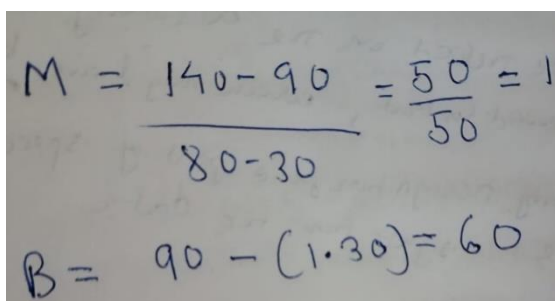 M = 140-90 / 80-30 = 50 / 50 = 1
B = 90 - (1·30) = 60